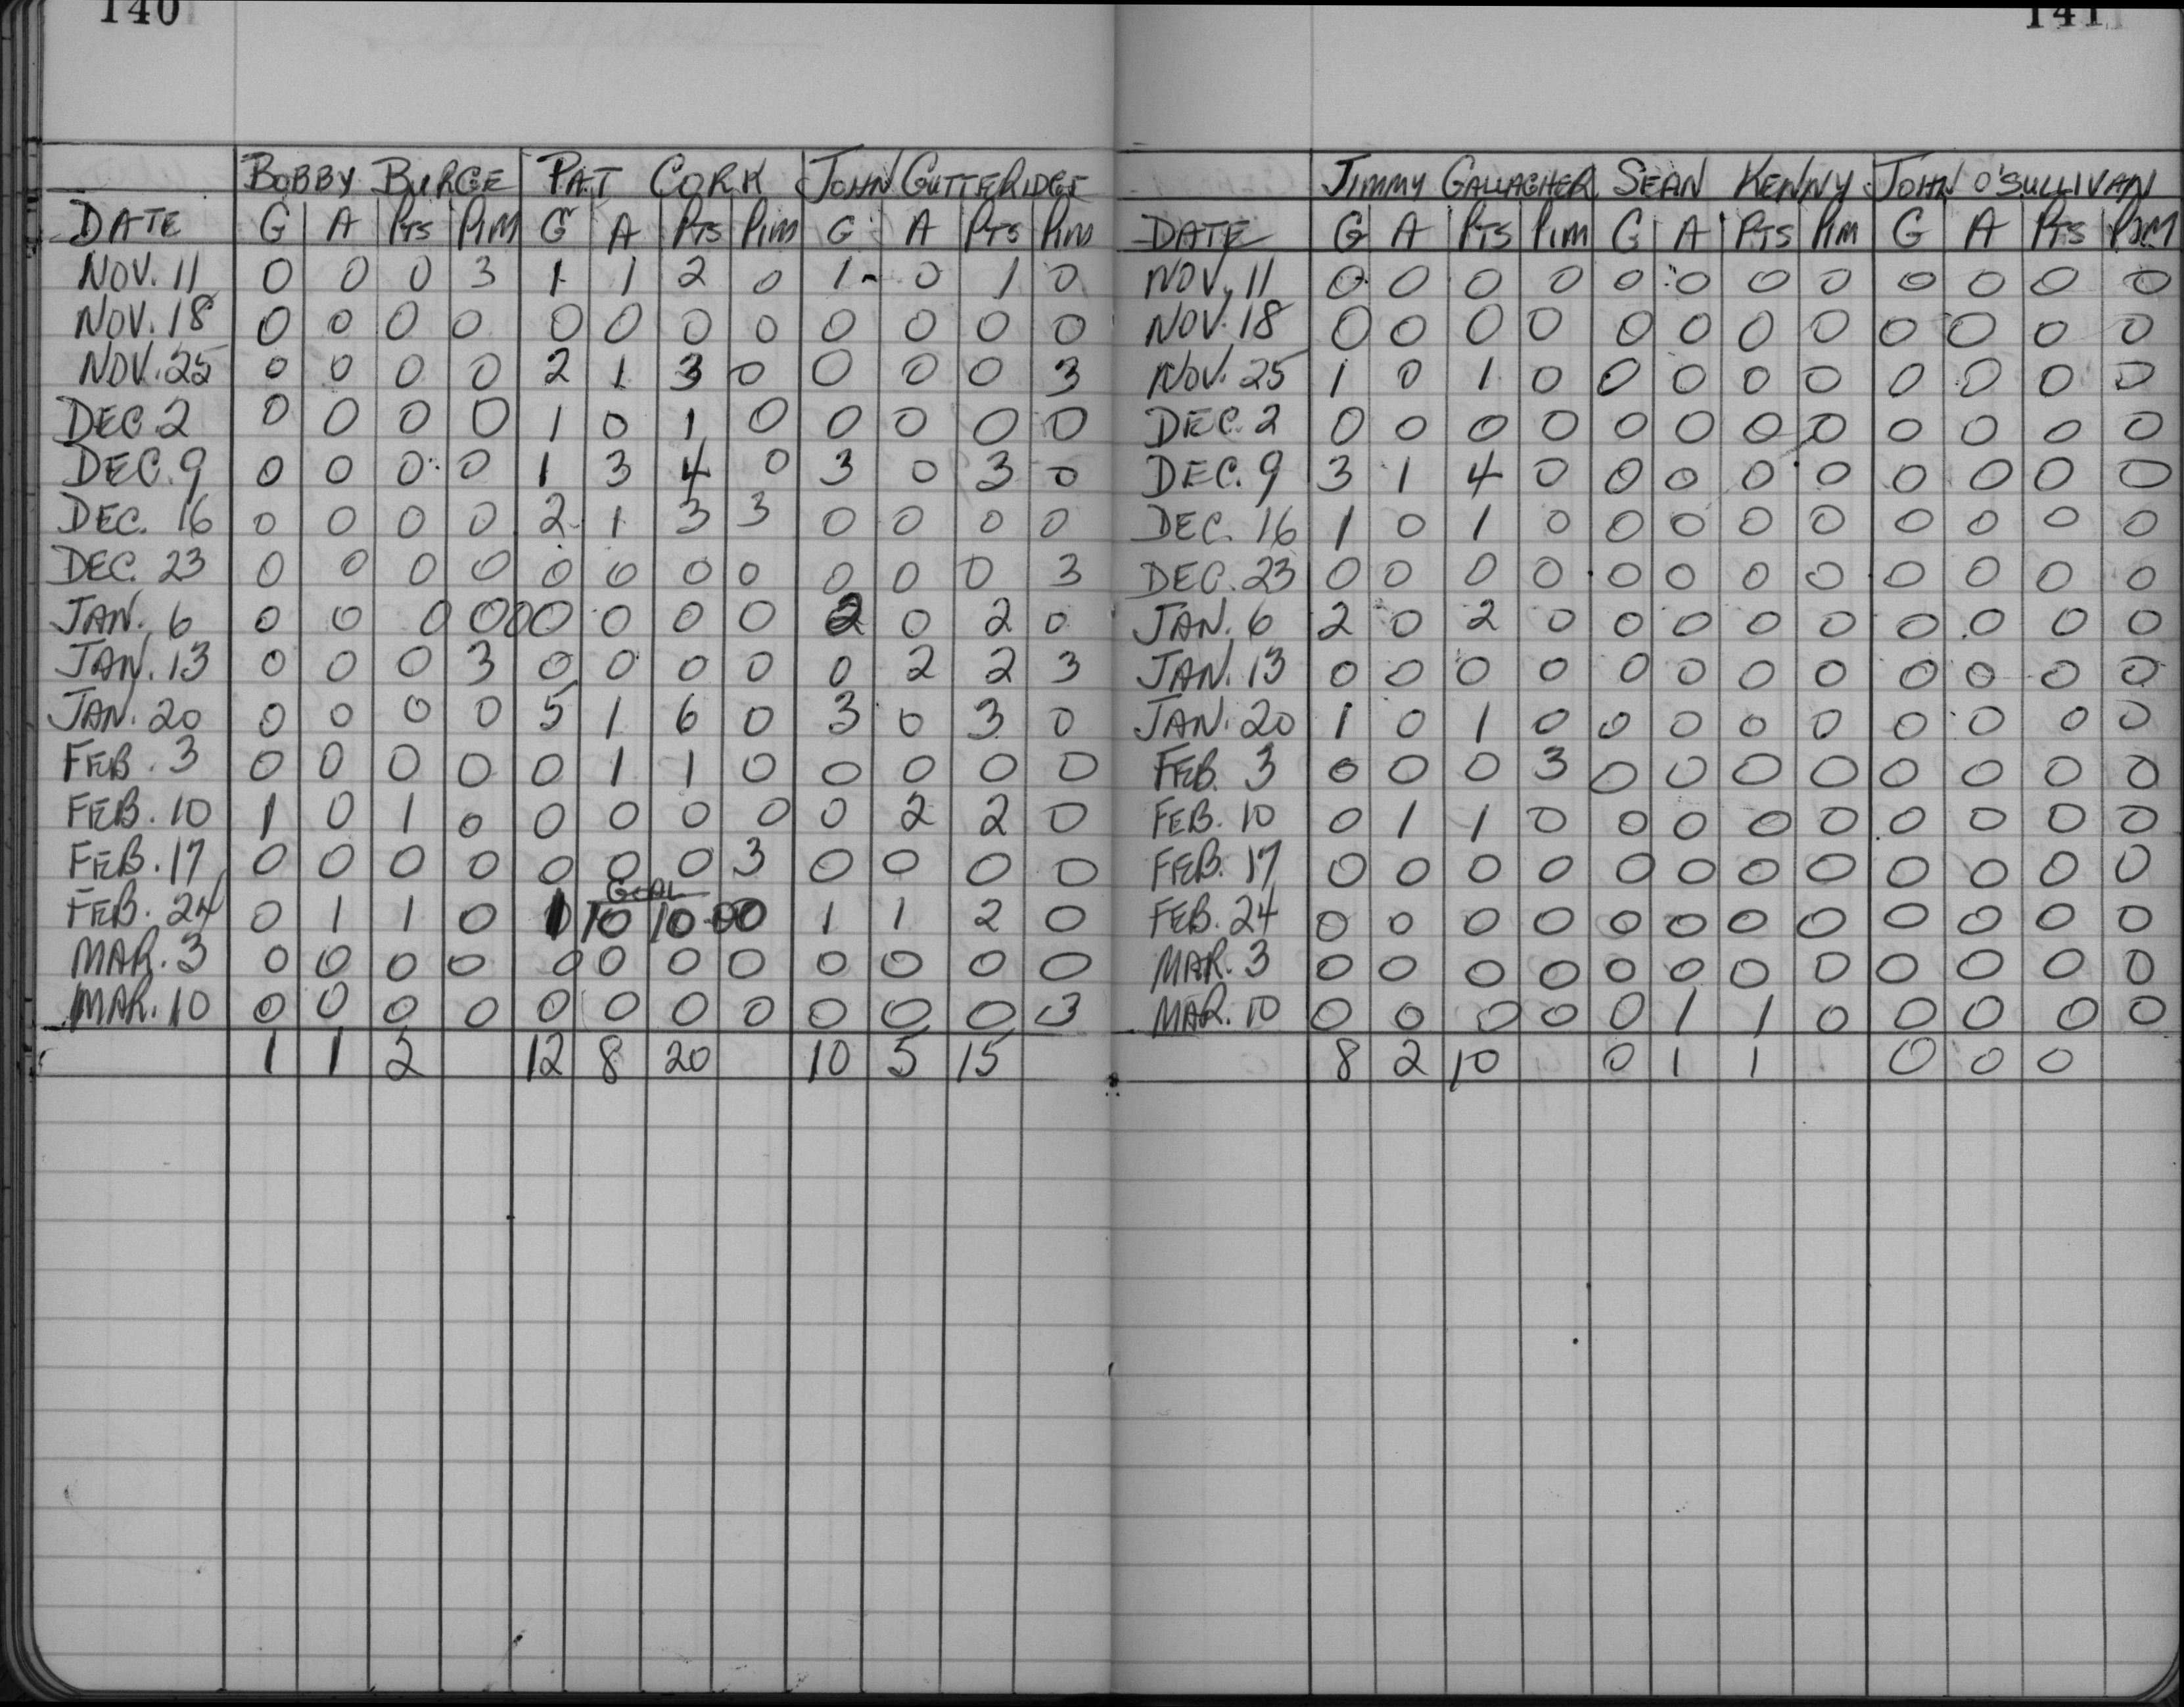 140
BOBBY BURGE PAT CORK JOHN GUTTERIDGE
DATE G A PTS PIM G A PTS PIM G A PTS PIM
NOV. 11 0 0 0 3 1 1 2 0 1 0 1 0
NOV. 18 0 0 0 0 0 0 0 0 0 0 0 0
NOV. 25 0 0 0 0 2 1 3 0 0 0 0 3
DEC. 2 0 0 0 0 1 0 1 0 0 0 0 0
DEC. 9 0 0 0 0 1 3 4 0 3 0 3 0
DEC. 16 0 0 0 0 2 1 3 3 0 0 0 0
DEC. 23 0 0 0 0 0 0 0 0 0 0 0 3
JAN. 6 0 0 0 0 0 0 0 0 0 2 0 2 0
JAN. 13 0 0 0 3 0 0 0 0 0 2 2 3
JAN. 20 0 0 0 0 5 1 6 0 3 0 3 0
FEB. 3 0 0 0 0 0 1 1 0 0 0 0 0
FEB. 10 1 0 1 0 0 0 0 0 0 2 2 0
FEB. 17 0 0 0 0 0 0 0 3 0 0 0 0
GOAL
FEB. 24 0 1 1 0 10 10 00 1 1 2 0
MAR. 3 0 0 0 0 0 0 0 0 0 0 0 0
MAR. 10 0 0 0 0 0 0 0 0 0 0 0 3
1 1 2 12 8 20 10 5 15
141
JIMMY GALLAGHER SEAN KENNY JOHN O'SULLIVAN
DATE G A PTS PIM G A PTS PIM G A PTS PIM
NOV. 11 0 0 0 0 0 0 0 0 0 0 0 0
NOV. 18 0 0 0 0 0 0 0 0 0 0 0 0
NOV. 25 1 0 1 0 0 0 0 0 0 0 0 0
DEC. 2 0 0 0 0 0 0 0 0 0 0 0 0
DEC. 9 3 1 4 0 0 0 0 0 0 0 0 0
DEC. 16 1 0 1 0 0 0 0 0 0 0 0 0
DEC. 23 0 0 0 0 0 0 0 0 0 0 0 0
JAN. 6 2 0 2 0 0 0 0 0 0 0 0 0
JAN. 13 0 0 0 0 0 0 0 0 0 0 0 0
JAN. 20 1 0 1 0 0 0 0 0 0 0 0 0
FEB. 3 0 0 0 3 0 0 0 0 0 0 0 0
FEB. 10 0 1 1 0 0 0 0 0 0 0 0 0
FEB. 17 0 0 0 0 0 0 0 0 0 0 0 0
FEB. 24 0 0 0 0 0 0 0 0 0 0 0 0
MAR. 3 0 0 0 0 0 0 0 0 0 0 0 0
MAR. 10 0 0 0 0 0 1 1 0 0 0 0 0
8 2 10 0 1 1 0 0 0